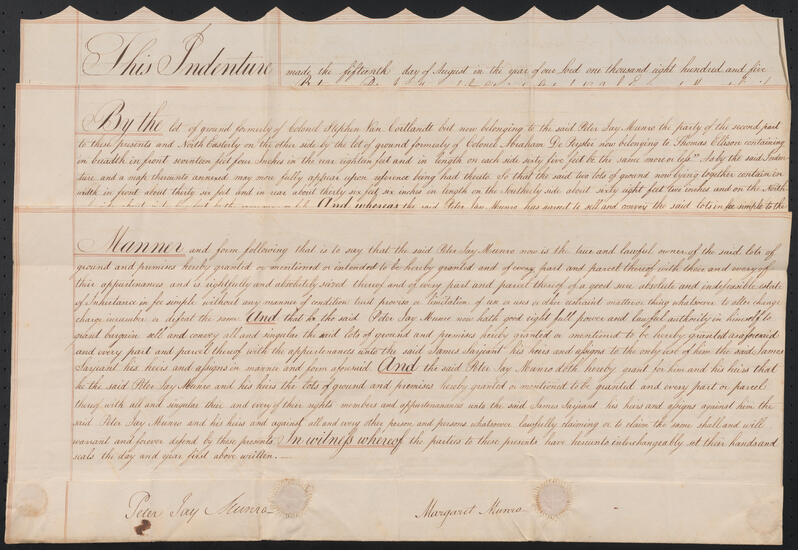 This Indenture made the fifteenth day of August in the year of our Lord one thousand eight hundred and five
By the lot of ground formerly of Colonel Stephen Van Cortlandt but now belonging to the said Peter Jay Munro the party of the second part
to these presents and North Easterly on the other side by the lot of ground formerly of Colonel Abraham De Peyster now belonging to Thomas Ellison containing
in breadth in front seventeen feet four Inches in the rear eighteen feet and in length on each side sixty five feet be the same more or less" As by the said Inden-
ture and a map thereunto annexed may more fully appear upon reference being had thereto. So that the said two lots of ground now lying together contain in
width in front about thirty six feet and in rear about thirty six feet six inches in length on the Southerly side about sixty eight feet two inches and on the North
And whereas the said Peter Jay Munro has agreed to sell and convey the said lots in fee simple to the
Manner and form following that is to say that the said Peter Jay Munro now is the true and lawful owner of the said lots of
ground and premises hereby granted or mentioned or intended to be hereby granted and of every part and parcel thereof with their and every of
their appurtenances and is rightfully and absolutely seized thereof and of every part and parcel thereof of a good sure absolute and indefeasible estate
of Inheritance in fee simple without any manner of condition trust proviso or limitation of use or uses or other restraint matter or thing whatsoever to alter change
charge incumber or defeat the same And that he the said Peter Jay Munro now hath good right full power and lawful authority in himself to
grant bargain sell and convey all and singular the said lots of ground and premises hereby granted or mentioned to be hereby granted as aforesaid
and every part and parcel thereof with the appurtenances unto the said James Sarjeant his heirs and assigns to the only use of him the said James
Sarjeant his heirs and assigns in manner and form aforesaid And the said Peter Jay Munro doth hereby grant for him and his heirs that
he the said Peter Jay Munro and his heirs the lots of ground and premises hereby granted or mentioned to be granted and every part or parcel
thereof with all and singular their and every of their rights members and appurtenances unto the said James Sarjeant his heirs and assigns against him the
said Peter Jay Munro and his heirs and against all and every other person and persons whatsoever lawfully claiming or to claim the same shall and will
warrant and forever defend by these presents In witness whereof the parties to these presents have hereunto interchangeably set their hands and
seals the day and year first above written.
Peter Jay Munro Margaret Munro